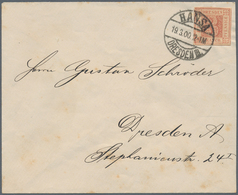 HANSA
19.3.00. 2-3N
DRESDEN
Herrn Gustav Schröder
Dresden A
Stephanienstr. 24 I